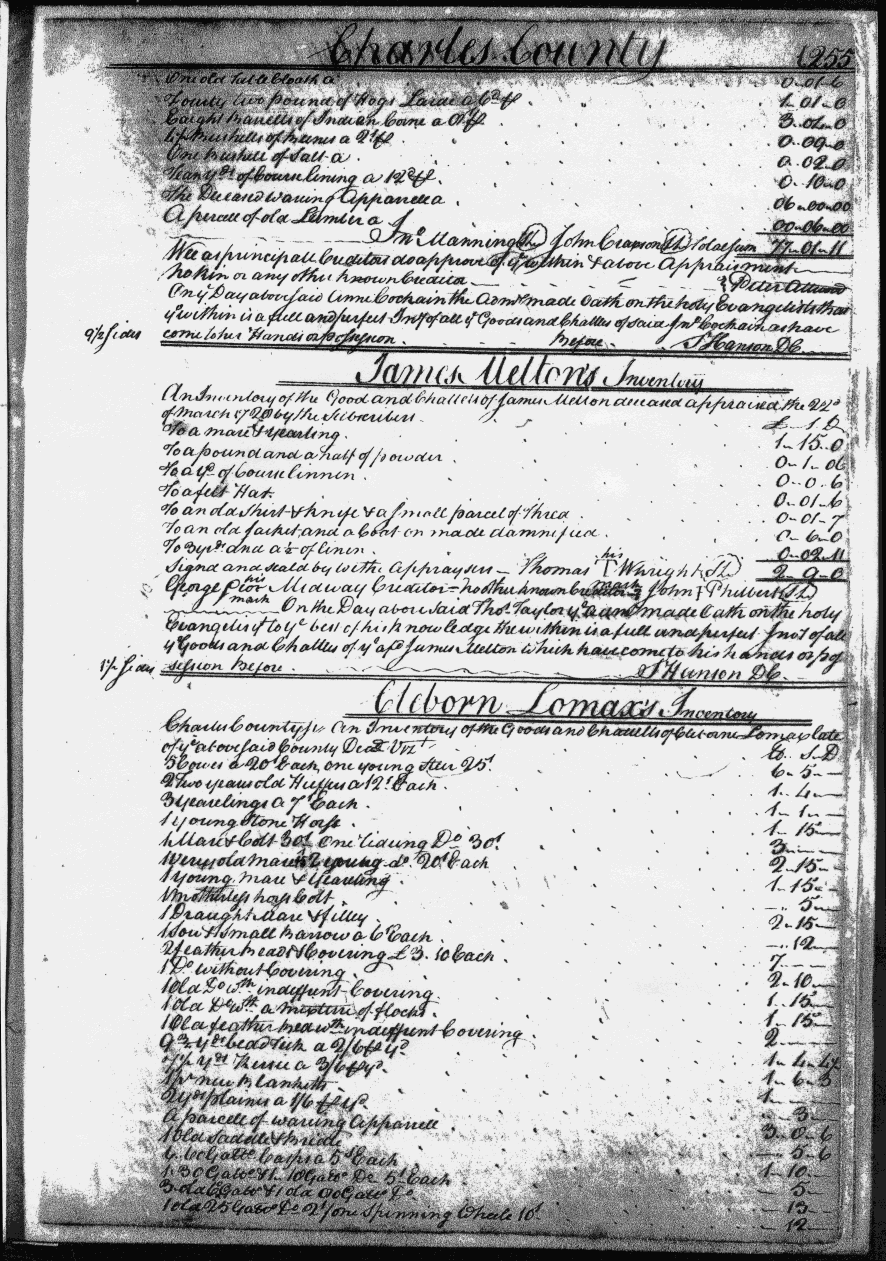 Charles County 1255
One old Table Cloath a 0-01-6
Fourty two pound of Hogs Lard a 6d 1-01-0
Eaight Barrells of Indian Corne a 3-04-0
Bushells of Beanes a 2s 0-09-0
One Bushell of Salt a 0-02-0
Tean yds of Course lining a 12d 0-10-0
The Deceased waring Apparrell a 06-00-00
A parcell of old Lumber a 00-06-00
Jno Manning John Totall Sum 77-01-11
Wee as principale Creditors do approve of ye within & above Appraisment
no kin or any other known Creditor Peter
On ye Day abovesaid Anne Cochain the Admx made Oath on the holy Evangelists that
ye within is a full and perfect Invt of all ye Goods and Chattles of said Jno Cochain as have
9 1/2 Sides come to her Hands or possession. Before S Hanson DC
James Melton's Inventory
An Inventory of the Good and Chattells of James Melton deceased appraised the 22d
of March 1720 by the Subscribers £ S D
To a mare & yearling. 1-15-0
To a pound and a half of powder 0-1-06
To a yd of Course linnen 0-0-6
To a felt Hat 0-01-6
To an old Shirt & knife & a small parcel of Thred 0-01-7
To an old Jacket, and a Coat on made damnified 0-6-0
To 3 yds and a 1/2 of linen. 0-02-11
Signd and seald by us the Appraysers Thomas T Wright 2-9-0
his
George Midway Creditor no other known Creditor John Philbert
his mark mark
On the Day abovesaid Thos Taylor ye adm made Oath on the holy
Evangelist to ye best of his knowledge the within is a full and perfect Invt of all
ye Goods and Chattles of ye afd James Melton which have come to his hands or pos
1 1/2 Sides session Before S Hanson DC
Cleborn Lomax's Inventory
Charles County ss An Inventory of the Goods and Chattells of Cleborne Lomax late
of ye abovesaid County Decd Vizt £ S D
5 Cowes a 20s Each, one young Steer 25s 6-5-
2 Two years old Heiffers a 12s Each 1-4-
3 yearelings a 7s Each 1-1-
1 young Stone Horse 1-15-
1 Mare & Colt 30s One Riding Do 30s 3-
1 very old mare & 2 young do 20s Each 2-15-
1 young mare & yearling 1-15-
1 motherless horse Colt -5-
1 Draught Mare & filley 2-15-
1 Sow & small Barrow a 6s Each -12-
2 feather Beads & Covering £3.10 Each 7-
1 Do without Covering 2-10-
1 old Do wth indifferent Covering 1-15-
1 old Do wth a mixture of flocks 1-15-
1 Old feather Bead wth indifferent Covering 2-
9 3/4 yds bead Tick a 2/6 yd 1-4-4 1/2
yds Kersie a 3/6 yd 1-6-3
1 pr new Blanketts 1-
2 yds plaines a 1/6 yd -3-
A parcell of waring Apparrell 3-0-6
1 Old Saddle & bridle -5-6
60 Gallo Casps a 5s Each 1-10-
1 30 Gallo & 1 10 Gallo Do 5s Each -5-
3 old Gallo & 1 old 60 Gallo Do -13-
1 old 25 Gallo Do 2s/ one Spinning Wheele 10s -12-